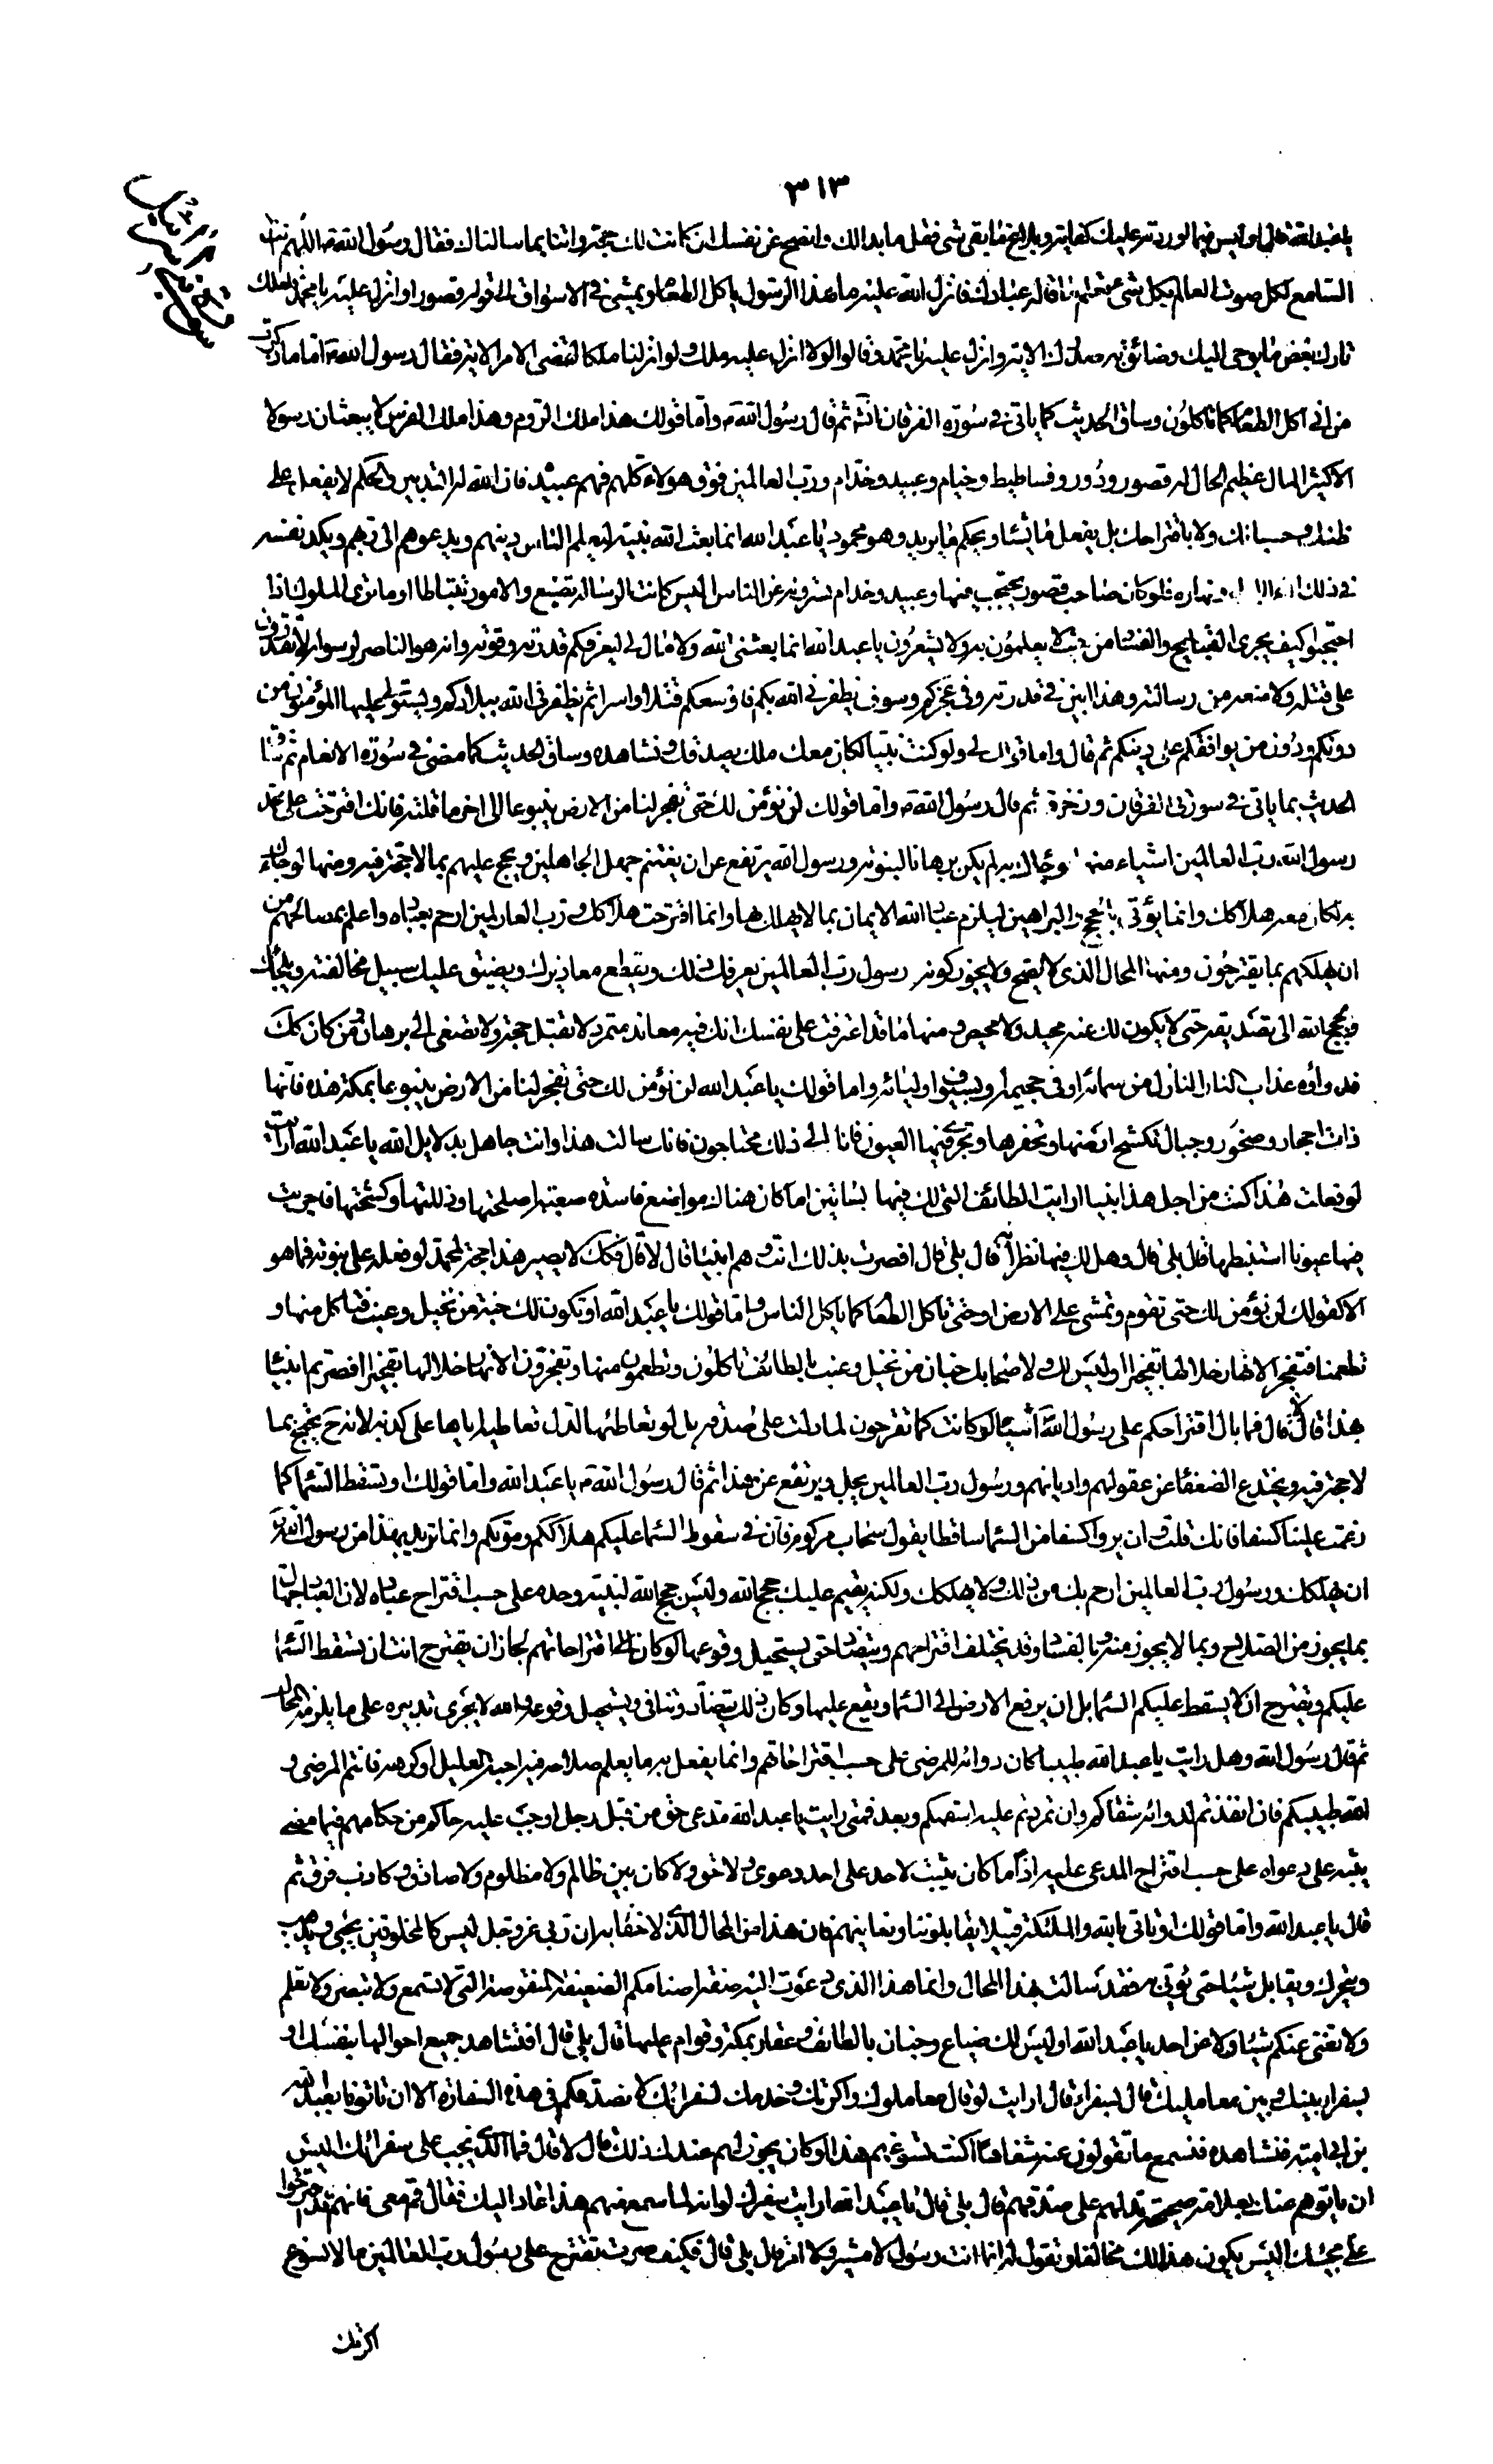 ٣١٣
يا عبد الله قال اوليس فيما اوردته عليك كفاية وبلاغ ما بقى شئ فقل ما بدا لك وافصح عن نفسك ان كانت لك حجة واتنا بما سالناك فقال رسول الله ص اللهم انت
السامع لكل صوت والعالم بكل شئ تعلم ما قاله عبادك فانزل الله عليه ما هذا الرسول ياكل الطعام ويمشى فى الاسواق الى قوله قصورا وانزل عليه يا محمد فلعلك
تارك بعض ما يوحى اليك وضائق به صدرك الاية وانزل عليه يا محمد وقالوا لولا انزل عليه ملك ولو انزلنا ملكا لقضى الامر الاية فقال رسول الله ص اما ما ذكرت
من انى اكل الطعام كما تاكلون وساق الحديث كما ياتى فى سورة الفرقان ثم قال رسول الله ص واما قولك هذا ملك الروم وهذا ملك الفرس لا يبعثان رسولا
الا كثير المال عظيم الحال له قصور ودور وفساطيط وخيام وعبيد وخدام ورب العالمين فوق هولاء كلهم فهم عبيده فان الله له التدبير والحكم لا يفعل على
ظنك وحسبانك ولا باقتراحك بل يفعل ما يشاء ويحكم ما يريد وهو محمود يا عبد الله انما بعث الله نبيه ليعلم الناس دينهم ويدعوهم الى ربهم ويكد نفسه
فى ذلك ونهاره فلو كان صاحب قصور يحتجب فيها وعبيد وخدام يسترونه عن الناس اليس كانت الرسالة تضيع والامور تتباطا اوما ترى الملوك اذا
احتجبوا كيف يجرى القبايح والفساد من حيث لا يعلمون به ولا يشعرون يا عبد الله انما بعثنى الله ولا مال لى ليعرفكم قدرته وقوته وانه هو الناصر لرسوله لا تقدرون
على قتله ولا منعه من رسالته وهذا ابين فى قدرته وفى عجزكم وسوف يظفرنى الله بكم فاوسعكم قتلا واسرا ثم يظفرنى الله ببلادكم ويستولى عليها المؤمنون من
دونكم ودون من يوافقكم على دينكم ثم قال واما قولك لى ولو كنت نبيا لكان معك ملك يصدقك ونشاهده وساق الحديث كما مضى فى سورة الانعام ثم
الحديث بما ياتى فى سورتى الفرقان وزخرف ثم قال رسول الله ص واما قولك لن نؤمن لك حتى تفجر لنا من الارض ينبوعا الى اخر ما قلته فانك اقترحت على محمد
رسول الله رب العالمين اشياء منها لو جاءك به لم يكن برهانا لنبوته ورسول الله يرتفع عن ان يغتنم جهل الجاهلين ويحتج عليهم بما لا حجة فيه ومنها لو جاءك
به لكان معه هلاكك وانما يؤتى بالحجج والبراهين ليلزم عباد الله الايمان بها لا يهلك بها وانما اقترحت هلاكك ورب العالمين ارحم بعباده واعلم بمصالحهم من
ان يهلكهم بما يقترحون ومنها المحال الذى لا يصح ولا يجوز كونه رسول رب العالمين يعرفك ذلك ويقطع معاذيرك ويضيق عليك سبيل مخالفته ويلجئك
بحجج الله الى تصديقه حتى لا يكون لك عنه محيد ولا محيص ومنها ما قد اعترفت على نفسك انك فيه معاند متمرد لا تقبل حجة ولا تصغى الى برهان ومن كان كك
فدواؤه عذاب النار النازل من سمائه او فى جحيمه او بسيوف اوليائه واما قولك يا عبد الله لن نؤمن لك حتى تفجر لنا من الارض ينبوعا بمكة هذه فانها
ذات احجار وصخور وجبال تكسح ارضها وتحفرها وتجرى فيها العيون فاننا الى ذلك محتاجون فانك سالت هذا وانت جاهل بدلايل الله يا عبد الله ارايت
لو فعلت هذا كنت من اجل هذا نبيا ارايت الطائف التى لك فيها بساتين اما كان هناك مواضع فاسدة صعبة اصلحتها وذللتها وكسحتها واجريت
فيها عيونا استنبطتها قال بلى قال وهل لك فيها نظراء قال بلى قال افصرت بذلك انت وهم انبياء قال لا قال فكك لا يصير هذا حجة لمحمد لو فعله على نبوته فما هو
الا كقولك لن نؤمن لك حتى تقوم وتمشى على الارض او حتى تاكل الطعام كما ياكل الناس واما قولك يا عبد الله او تكون لك جنة من نخيل وعنب فتاكل منها و
تطعمنا فتفجر الانهار خلالها تفجيرا اوليس لك ولاصحابك جنان من نخيل وعنب بالطائف تاكلون وتطعمون منها وتفجرون الانهار خلالها تفجيرا افصرتم انبياء
بهذا قال لا قال فما بال اقتراحكم على رسول الله ص اشياء لو كانت كما تقترحون لما دلت على صدقه بل لو تعاطاها لدل تعاطيه اياها على كذبه لانه ح يحتج بما
لا حجة فيه ويختدع الضعفاء عن عقولهم واديانهم ورسول رب العالمين يجل ويرتفع عن هذا ثم قال رسول الله ص يا عبد الله واما قولك او تسقط السماء كما
زعمت علينا كسفا فانك قلت وان يروا كسفا من السماء ساقطا يقولوا سحاب مركوم فان فى سقوط السماء عليكم هلاككم وموتكم وانما تريد بهذا من رسول الله ص
ان يهلكك ورسول رب العالمين ارحم بك من ذلك ولا يهلكك ولكنه يقيم عليك حجج الله وليس حجج الله لنبيه وحده على حسب اقتراح عباده لان العباد جهال
بما يجوز من الصلاح وبما لا يجوز منه وبالفساد وقد يختلف اقتراحهم ويتضاد حتى يستحيل وقوعها لو كان الى اقتراحاتهم لجاز ان يقترح انت ان تسقط السماء
عليكم ويقترح ان لا يسقط عليكم السماء بل ان يرفع الارض الى السماء ويقع عليها وكان ذلك يتضاد ويتنافى ويستحيل وقوعه والله لا يجرى تدبيره على ما يلزم به المحال
ثم قال رسول الله وهل رايت يا عبد الله طبيبا كان دوائه للمرضى على حسب اقتراحاتهم وانما يفعل به ما يعلم صلاحه فيه احبه العليل او كرهه فانتم المرضى و
الله طبيبكم فان انفذتم لدوائه شفاكم وان تمردتم عليه اسقمكم وبعد فمتى رايت يا عبد الله مدعى حق من قبل رجل اوجب عليه حاكم من حكامهم فيما مضى
بينة على دعواه على حسب اقتراح المدعى عليه اذا ما كان يثبت لاحد على احد دعوى ولا حق ولا كان بين ظالم ولا مظلوم ولا صادق وكاذب فرق ثم
قال يا عبد الله واما قولك او تاتى بالله والملئكة قبيلا يقابلوننا ونعاينهم فان هذا من المحال الذى لا خفاء به ان ربى عز وجل ليس كالمخلوقين يجئ ويذهب
ويتحرك ويقابل شيئا حتى يؤتى به فقد سالت بهذا المحال وانما هذا الذى دعوت اليه صفة اصنامكم الضعيفة المنقوصة التى لا تسمع ولا تبصر ولا تعلم
ولا تغنى عنكم شيئا ولا عن احد يا عبد الله اوليس لك ضياع وجنان بالطائف وعقار بمكة وقوام عليها قال بلى قال افتشاهد جميع احوالها بنفسك او
بسفراء بينك وبين معامليك قال بسفراء قال ارايت لو قال معاملوك واكرتك وخدمك لسفرائك لا نصدقكم فى هذه السفارة الا ان تاتونا بعبد الله
بن ابى امية فنشاهده فنسمع ما تقولون عنه شفاها اكنت تسوغهم هذا او كان يجوز لهم عندك ذلك قال لا قال فما الذى يجب على سفرائك اليس
ان ياتوهم عنك بعلامة صحيحة تدلهم على صدقهم قال بلى قال يا عبد الله ارايت سفيرك لو انه لما سمع منهم هذا عاد اليك فقال قم معى فانهم قد اقترحوا
على مجيئك اليس يكون هذا لك مخالفا وتقول له انما انت رسول لا مشير ولا امر قال بلى قال فكيف صرت تقترح على رسول رب العالمين ما لا تسوغ
اكرتك